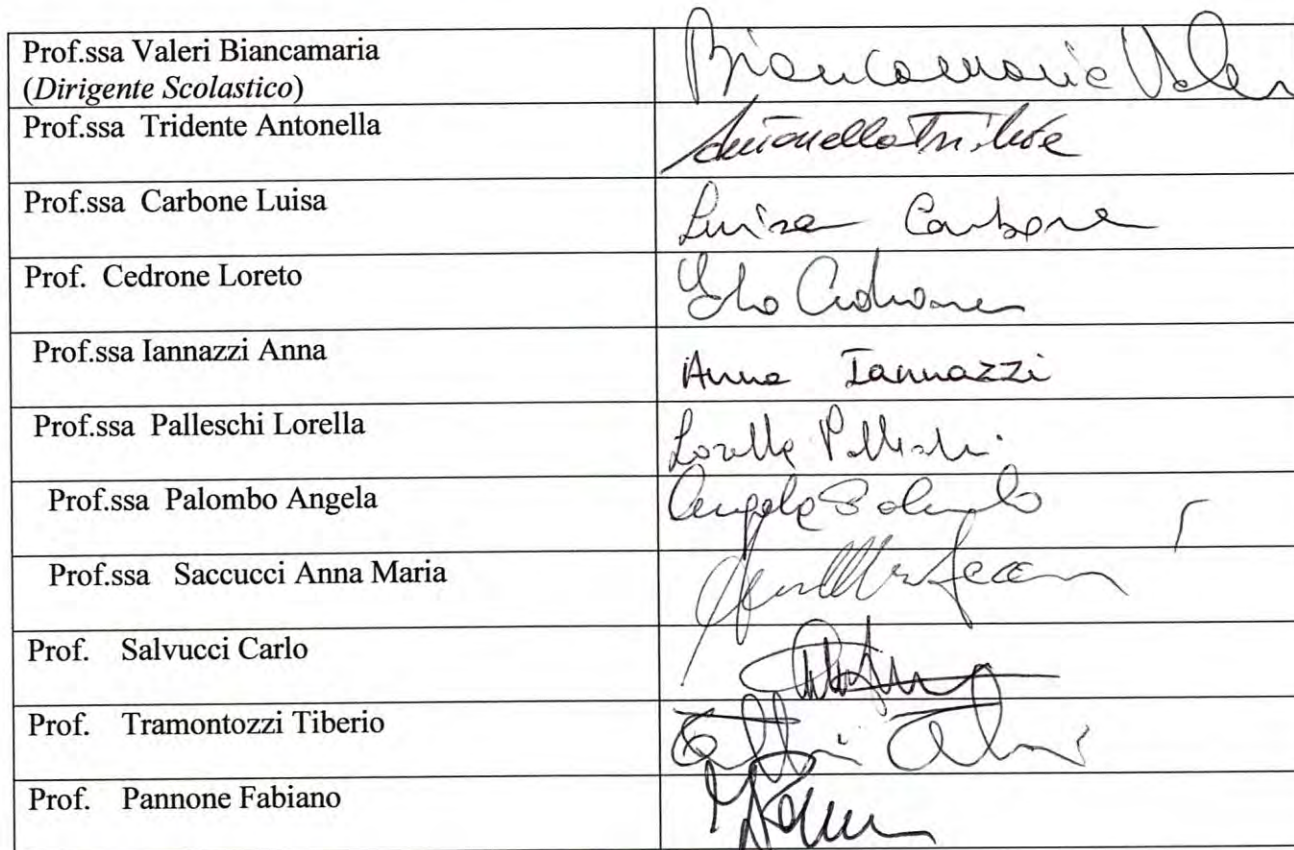 Prof.ssa Valeri Biancamaria
(Dirigente Scolastico)
Biancamaria Valeri
Prof.ssa Tridente Antonella
Antonella Tridente
Prof.ssa Carbone Luisa
Luisa Carbone
Prof. Cedrone Loreto
Cedrone
Prof.ssa Iannazzi Anna
Anna Iannazzi
Prof.ssa Palleschi Lorella
Lorella Palleschi
Prof.ssa Palombo Angela
Angela Palombo
Prof.ssa Saccucci Anna Maria
Prof. Salvucci Carlo
Prof. Tramontozzi Tiberio
Prof. Pannone Fabiano